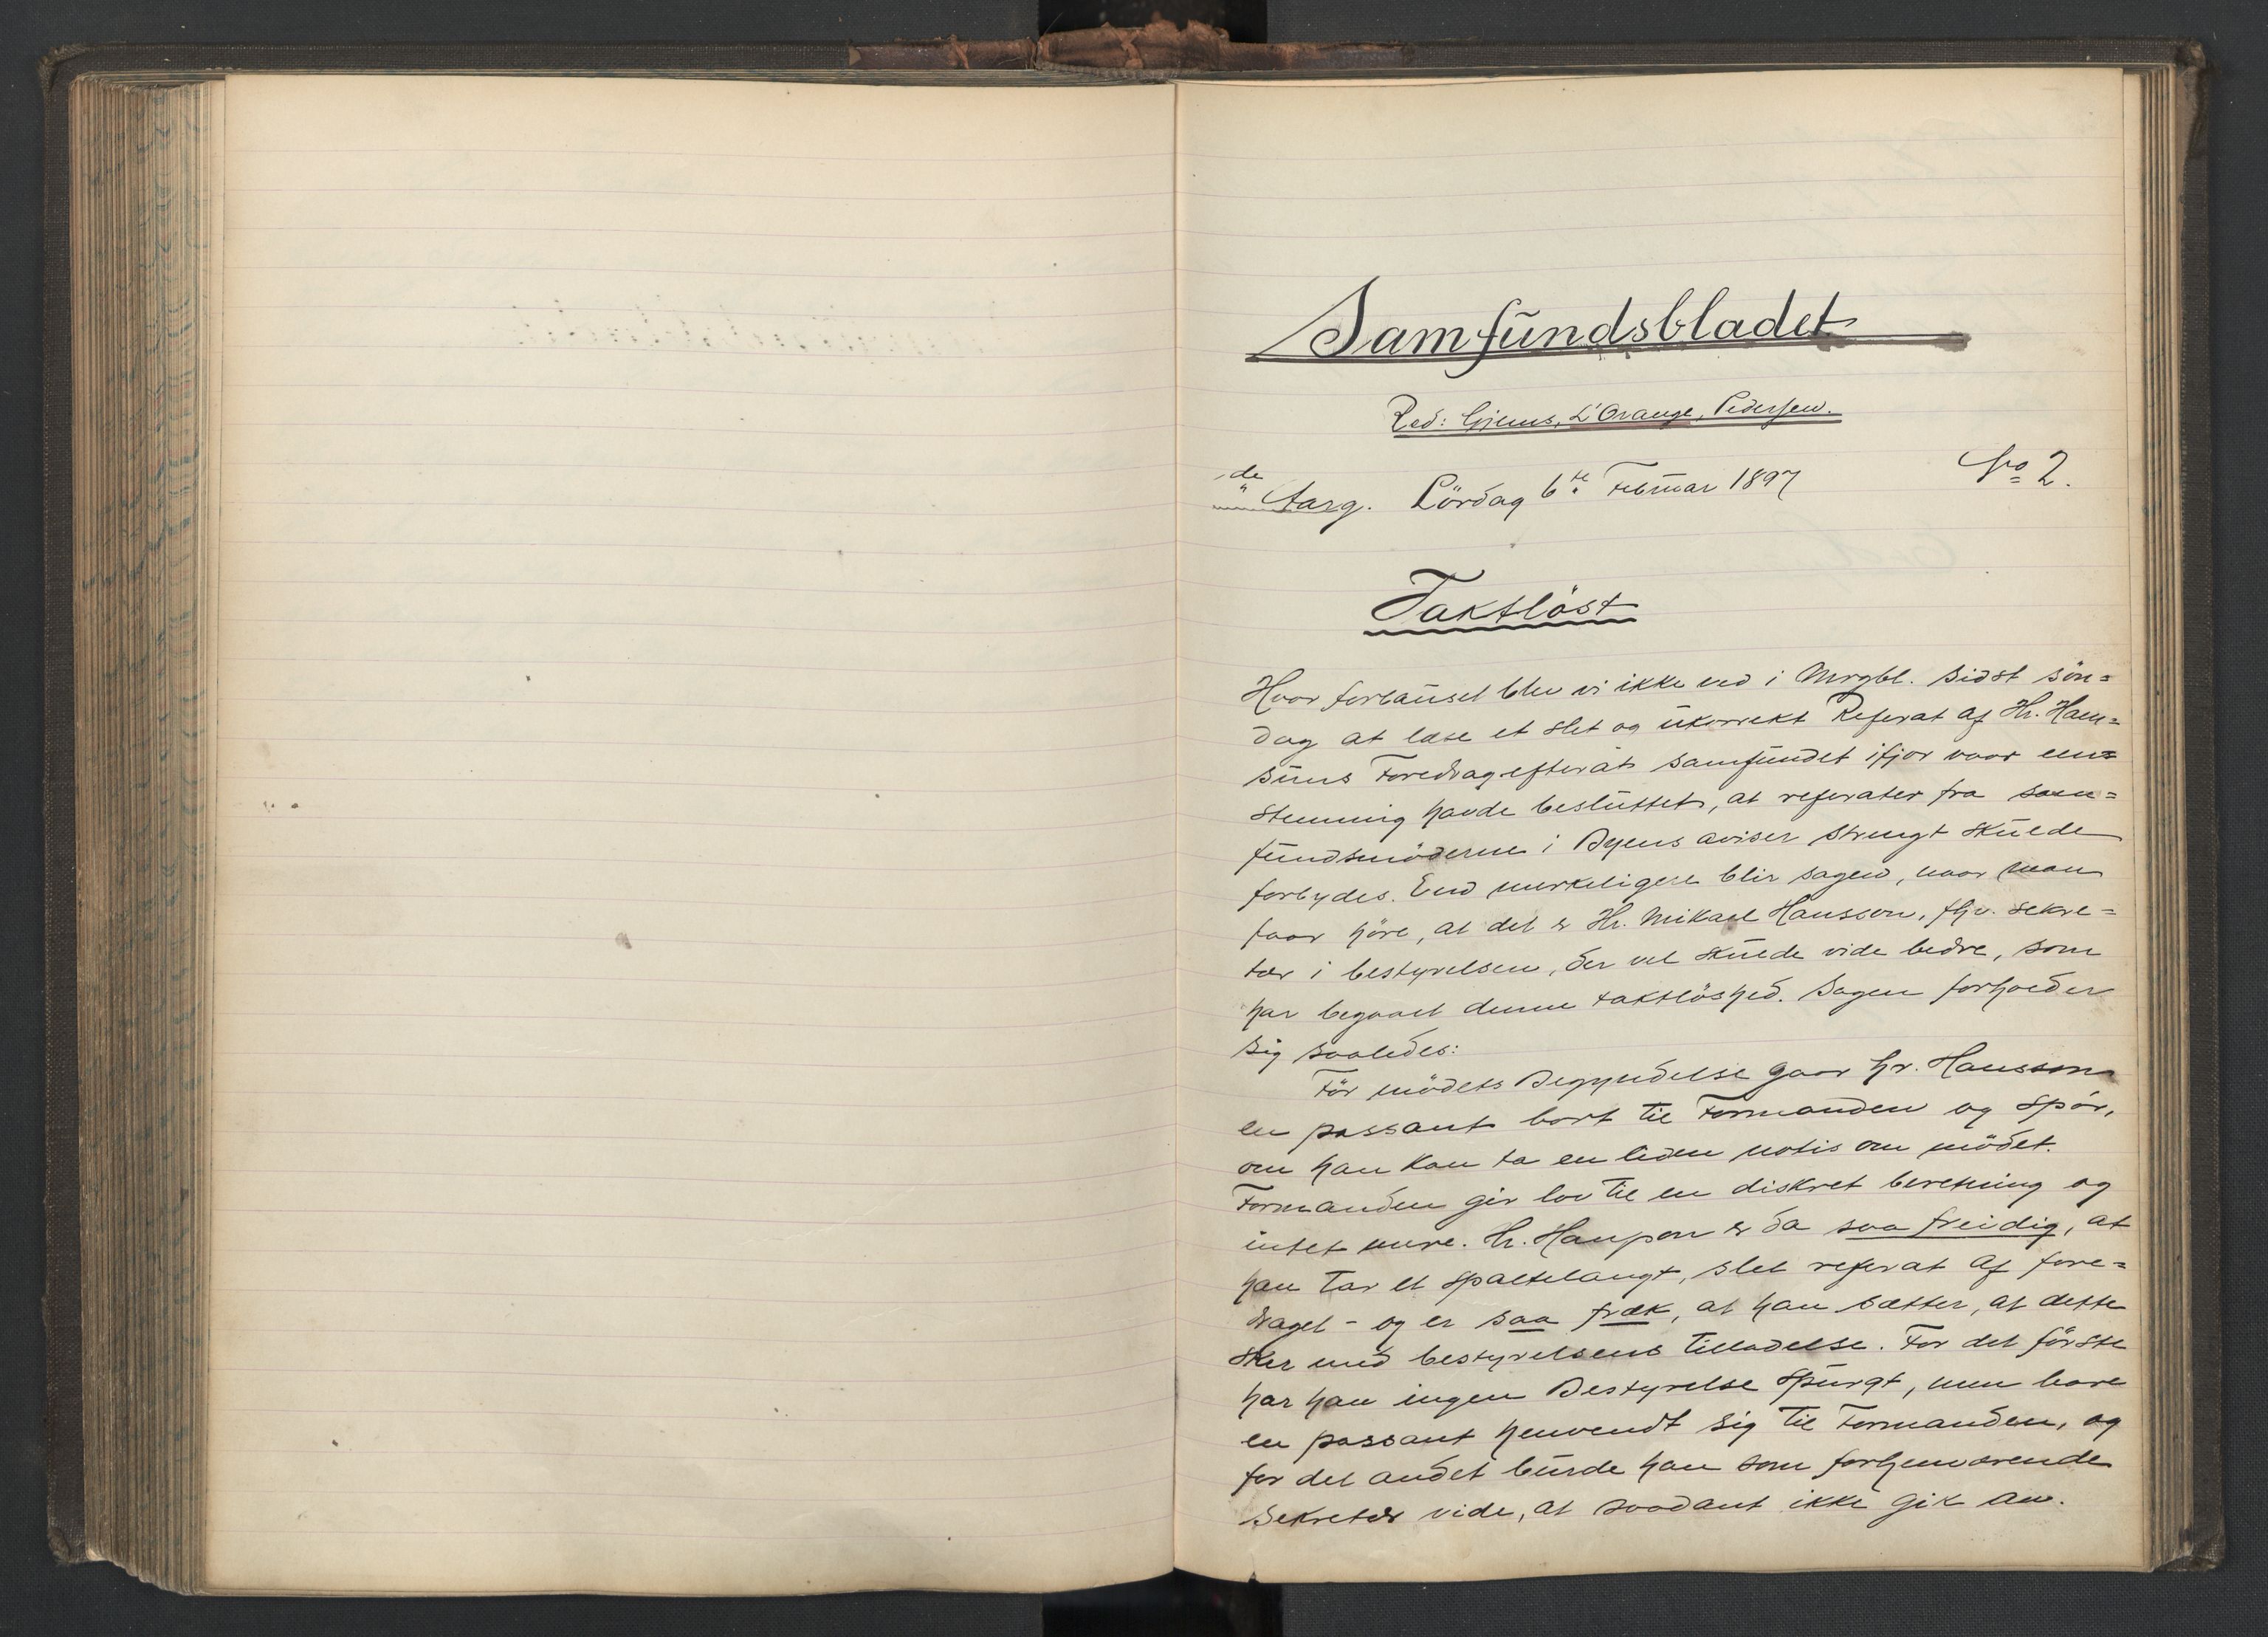 Samfundsbladet
Red: Gjems, L'Orange, Pedersen.
de Aarg. Lördag 6te Februar 1897 No 2.
Taktlöst
Hvor forbauset blev vi ikke ved i Mrgbl. sidst sön=
dag at læse et slet og ukorrekt Referat af Hr. Ham=
suns Foredrag efterat samfundet ifjor vaar en=
stemmig havde besluttet, at referater fra sam=
fundsmöderne i Byens aviser strengt skulde
forbydes. End merkeligere blir sagen, naar man
faar höre, at det er Hr. Mikael Hansson, fhv. sekre=
tær i bestyrelsen, der vel skulde vide bedre, som
har begaaet denne taktlöshed. Sagen forholder
sig saaledes:
För mödets Begyndelse gaar hr. Hansson
en passant bort til Formanden og spör,
om han kan ta en liden notis om mödet.
Formanden gir lov til en diskret beretning og
intet mere. Hr. Hansson er da saa freidig, at
han tar et spaltelangt, slet referat af fore=
draget - og er saa fræk, at han sætter, at dette
sker med bestyrelsens tilladelse. For det förste
har han ingen Bestyrelse spurgt, men bare
en passant henvendt sig til Formanden, og
for det andet burde han som forhenværende
Sekretær vide, at saadant ikke gik an.